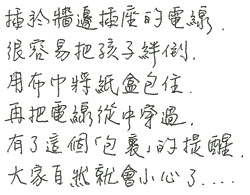 插於牆邊插座的電線.
很容易把孩子絆倒.
用布巾將紙盒包住.
再把電線從中穿過.
有了這個「包裹」的提醒.
大家自然就會小心了....